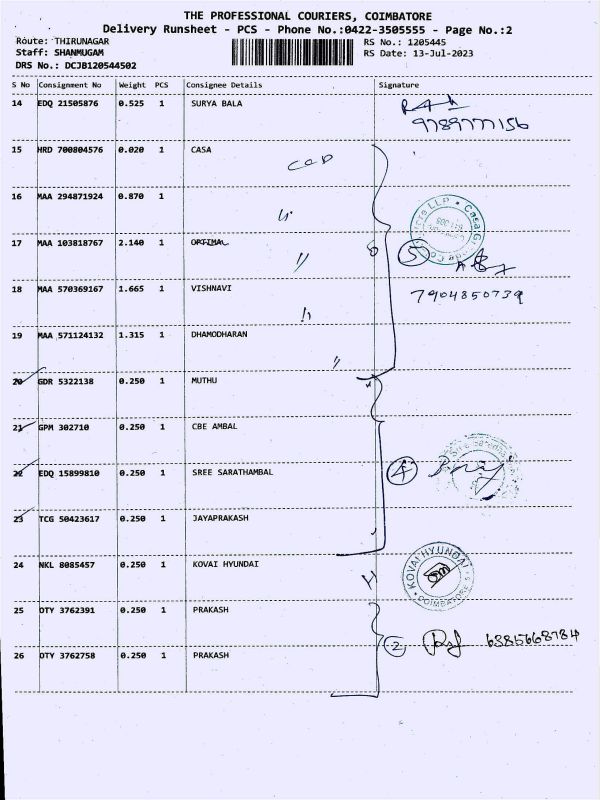 THE PROFESSIONAL COURIERS, COIMBATORE
Delivery Runsheet - PCS - Phone No.:0422-3505555 - Page No.:2
Route: THIRUNAGAR RS No.: 1205445
Staff: SHANMUGAM RS Date: 13-Jul-2023
DRS No.: DCJB120544502
S No Consignment No Weight PCS Consignee Details Signature
14 EDQ 21505876 0.525 1 SURYA BALA
9789777156
15 HRD 700804576 0.020 1 CASA
16 MAA 294871924 0.870 1
17 MAA 103818767 2.140 1 OPTIMAL
5
18 MAA 570369167 1.665 1 VISHNAVI
7904850739
19 MAA 571124132 1.315 1 DHAMODHARAN
20 GDR 5322138 0.250 1 MUTHU
21 GPM 302710 0.250 1 CBE AMBAL
22 EDQ 15899810 0.250 1 SREE SARATHAMBAL
4
23 TCG 50423617 0.250 1 JAYAPRAKASH
24 NKL 8085457 0.250 1 KOVAI HYUNDAI
KOVAI HYUNDAI
COIMBATORE
25 OTY 3762391 0.250 1 PRAKASH
2 6385668784
26 OTY 3762758 0.250 1 PRAKASH